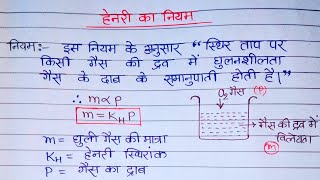 हेनरी का नियम
नियम:- इस नियम के अनुसार "स्थिर ताप पर
किसी गैस की द्रव में घुलनशीलता
गैस के दाब के समानुपाती होती है।"
∴ m∝P
m = K_H P
O₂ गैस (P)
गैस की द्रव में
विलेयता
(m)
m = घुली गैस की मात्रा
K_H = हेनरी स्थिरांक
P = गैस का दाब